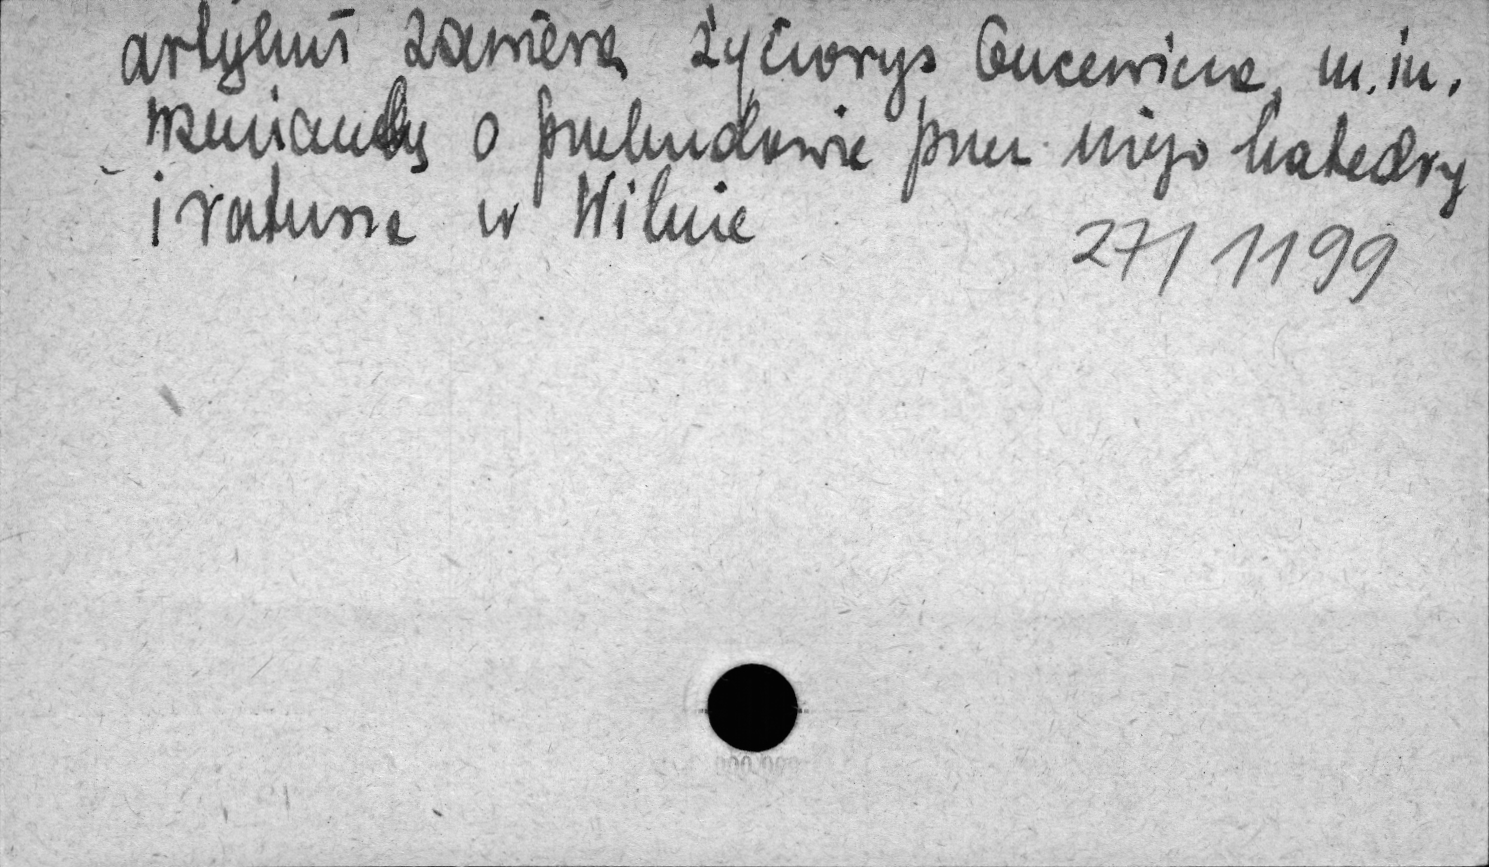 artykuł zawiera życiorys Gucewicza, m.in.
wzmiankę o przebudowie przez niego katedry
i ratusza w Wilnie
27/1199